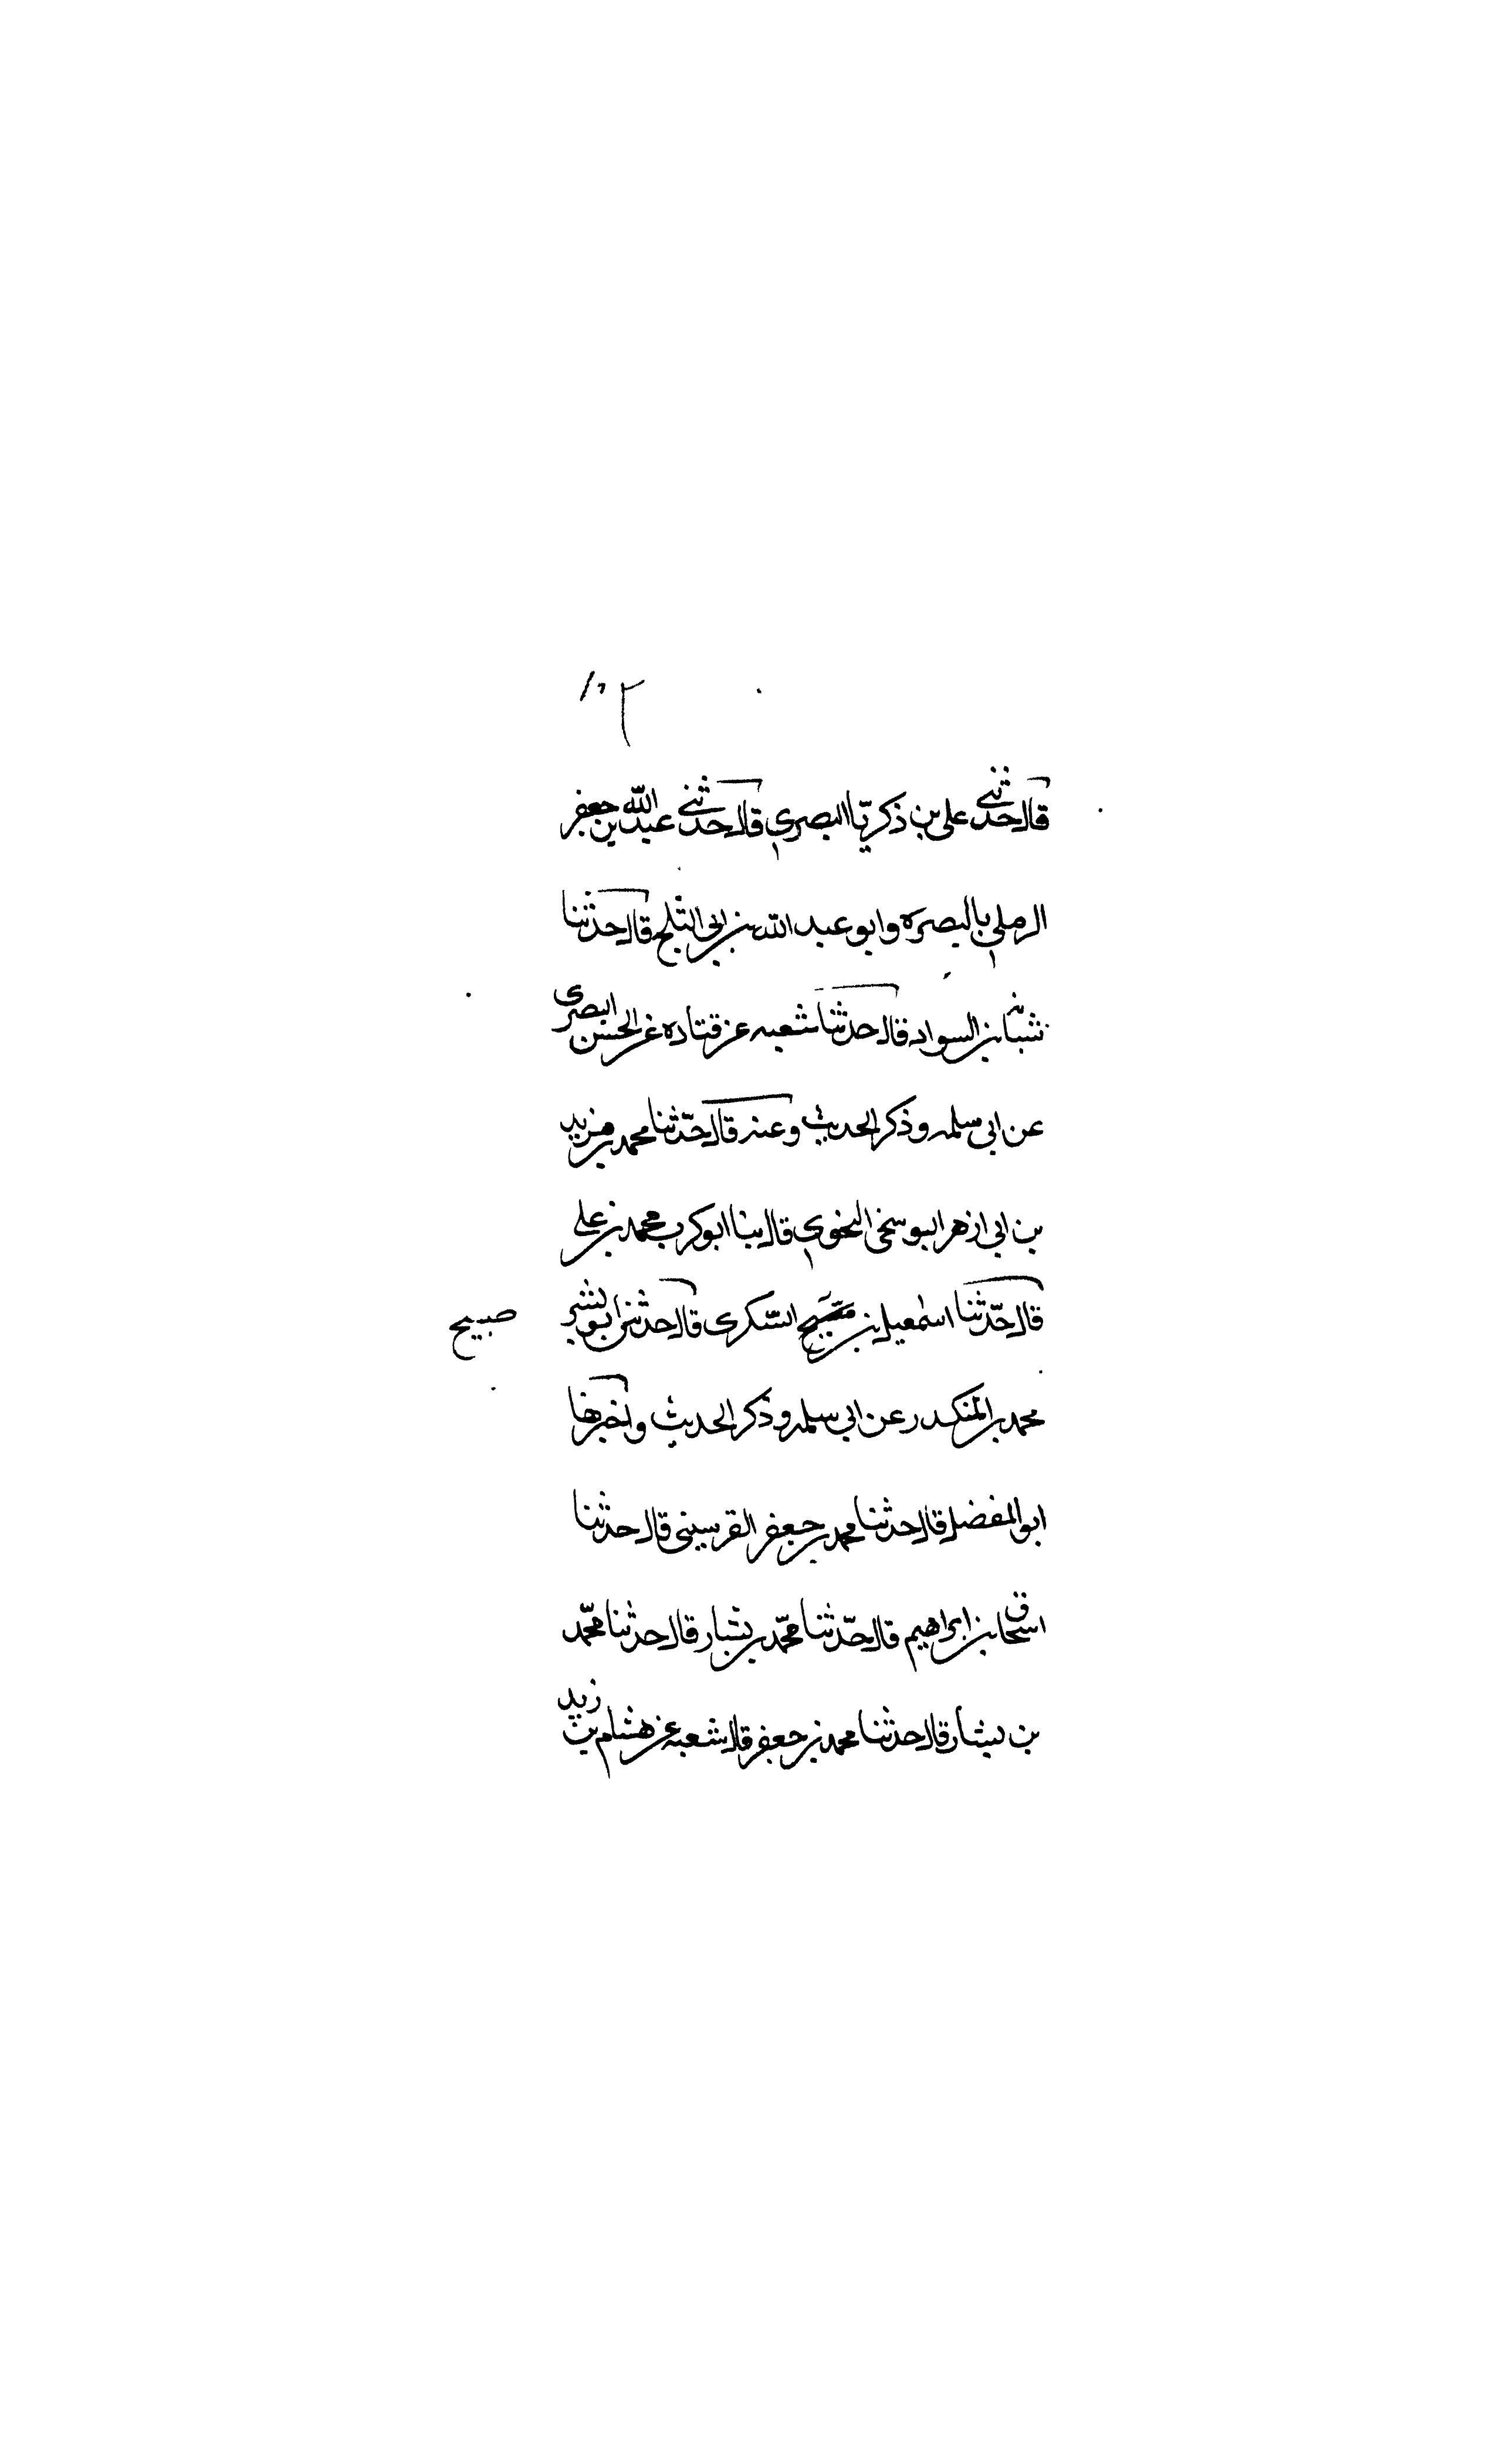 قال حدثني علي بن ذكريا البصري قال حدثني عبد الله بن جعفر
الرملي بالبصره وابو عبد الله بن ابي الثلج قال حدثنا
شبابه بن السوار قال حدثنا شعبه عن قتاده عن الحسن البصرى
عن ابي سلمه وذكر الحديث وعنه قال حدثنا محمد بن مزيد
بن ابي ازهر البوسخي النحوي قال بنا ابوكرب محمد بن علي
قال حدثنا اسمعيل بن صبيح السكرى قال حدثنا ابو بشر
صبيح
محمد بن المنكدر عن ابي سلمه وذكر الحديث واخبرنا
ابو المفضل قال حدثنا محمد بن جعفر القرسيني قال حدثنا
اسحاق بن ابراهيم قال حدثنا محمد بن بشار قال حدثنا محمد
بن بشار قال حدثنا محمد بن جعفر قال شعبه عن هشام بن زيد